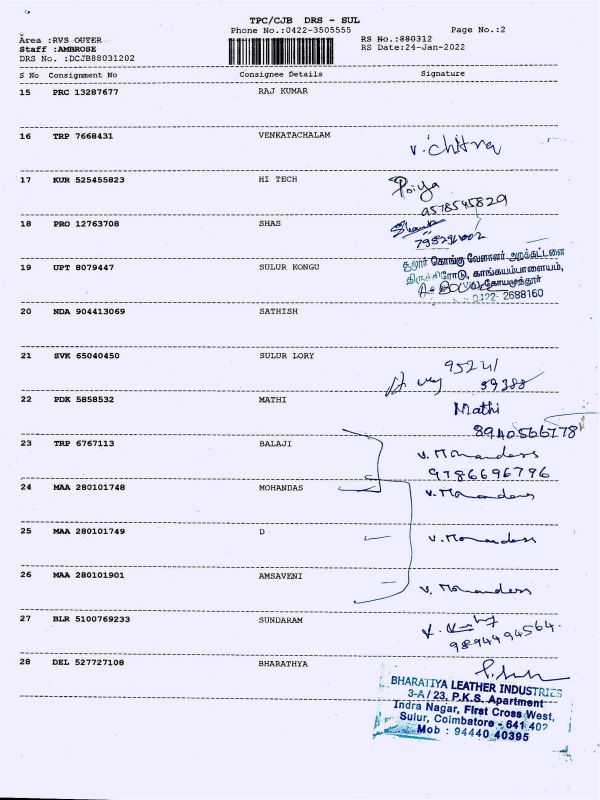 TPC/CJB DRS - SUL
Phone No.:0422-3505555 Page No.:2
Area :RVS OUTER RS No.:880312
Staff :AMBROSE RS Date:24-Jan-2022
DRS No. :DCJB88031202
S No Consignment No Consignee Details Signature
15 PRC 13287677 RAJ KUMAR
16 TRP 7668431 VENKATACHALAM
V. Chitra
17 KUR 525455823 HI TECH
Poiya
9578545829
18 PRO 12763708 SHAS
19 UPT 8079447 SULUR KONGU
சூலூர் கொங்கு வேளாளர் அறக்கட்டளை
திருச்சிரோடு, காங்கயம்பாளையம்,
கோயமுத்தூர்
0422- 2688160
20 NDA 904413069 SATHISH
21 SVK 65040450 SULUR LORY
95241
59388
22 PDK 5858532 MATHI
Mathi
8940566178
23 TRP 6767113 BALAJI
V. Mohandoss
9786696796
24 MAA 280101748 MOHANDAS
V. Mohandoss
25 MAA 280101749 D
V. Mohandoss
26 MAA 280101901 AMSAVENI
V. Mohandoss
27 BLR 5100769233 SUNDARAM
9894494564.
28 DEL 527727108 BHARATHYA
BHARATIYA LEATHER INDUSTRIES
3-A / 23, P.K.S. Apartment
Indra Nagar, First Cross West,
Sulur, Coimbatore - 641 402
Mob : 94440 40395